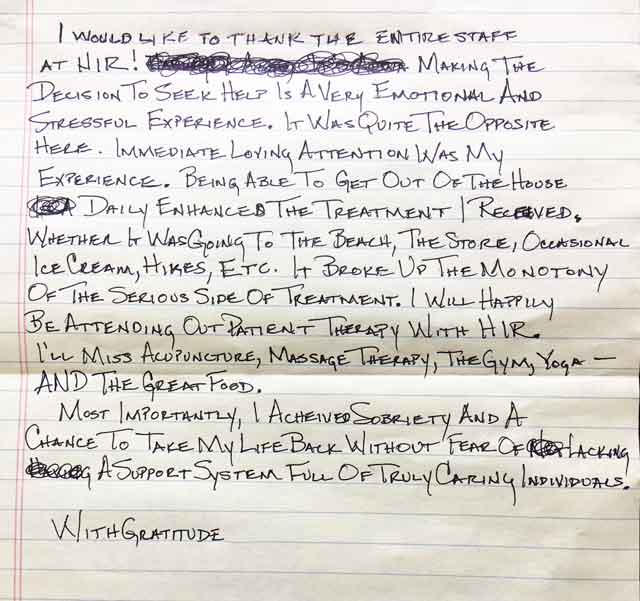 I WOULD LIKE TO THANK THE ENTIRE STAFF
AT HIR! MAKING THE
DECISION TO SEEK HELP IS A VERY EMOTIONAL AND
STRESSFUL EXPERIENCE. IT WAS QUITE THE OPPOSITE
HERE. IMMEDIATE LOVING ATTENTION WAS MY
EXPERIENCE. BEING ABLE TO GET OUT OF THE HOUSE
DAILY ENHANCED THE TREATMENT I RECEIVED.
WHETHER IT WAS GOING TO THE BEACH, THE STORE, OCCASIONAL
ICE CREAM, HIKES, ETC. IT BROKE UP THE MONOTONY
OF THE SERIOUS SIDE OF TREATMENT. I WILL HAPPILY
BE ATTENDING OUT PATIENT THERAPY WITH HIR.
I'LL MISS ACUPUNCTURE, MASSAGE THERAPY, THE GYM, YOGA —
AND THE GREAT FOOD.
MOST IMPORTANTLY, I ACHEIVED SOBRIETY AND A
CHANCE TO TAKE MY LIFE BACK WITHOUT FEAR OF LACKING
A SUPPORT SYSTEM FULL OF TRULY CARING INDIVIDUALS.
WITH GRATITUDE